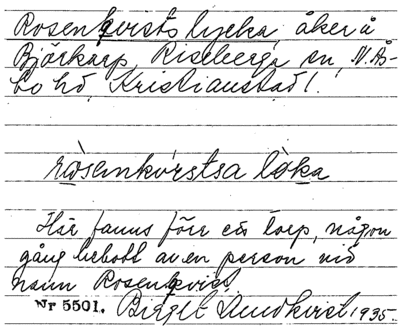 Rosenkvists lycka, åker å
Björkarp, Riseberga sn, N. Ås-
bo hd, Kristianstad l.
ròsenkvɩrstsa lø̀ka
Här fanns förr ett torp, någon
gång bebott av en person vid
namn Rosenkvist.
Nr 5501. Birgit Lindkvist 1935.